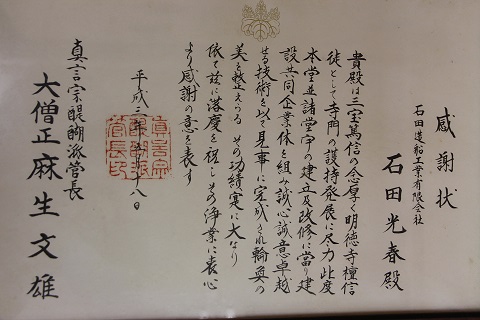 感謝状
石田造船工業有限会社
石田光春殿
貴殿は三宝篤信の念厚く明徳寺檀信
徒として寺門の護持発展に尽力此度
本堂並諸堂宇の建立及改修に当り建
設共同企業体を組み誠心誠意卓越
せる技術を以て見事に完成され輪奐の
美を整えらる その功績実に大なり
依て玆に落慶を祝しその浄業に衷心
より感謝の意を表す
平成二 八日
真言宗醍醐派管長
大僧正麻生文雄
真言宗
醍醐派
管長印